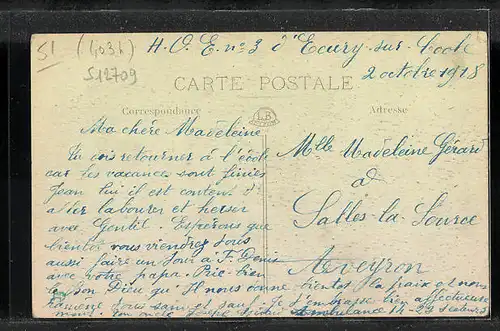 51 (4036)
S12709
H. O. E. n° 3 d'Ecury-sur-Coole
2 octobre 1918
CARTE POSTALE
Correspondance
LB
Adresse
Ma chère Madeleine
Tu vas retourner à l'école
car les vacances sont finies
Jean lui il est content d'
aller labourer et herser
avec Gentil. Espérons que
bientôt vous viendrez tous
aussi faire un tour à
avec votre papa. Prie bien
le bon Dieu qu'Il nous donne bientôt la paix et nous
ramène tous sain et sauf. Je t'embrasse bien affectueuse
ment. Ton oncle Joseph Ambulance 14-22 secteur
Mlle Madeleine Gérard
à
Salles-la-Source
Aveyron